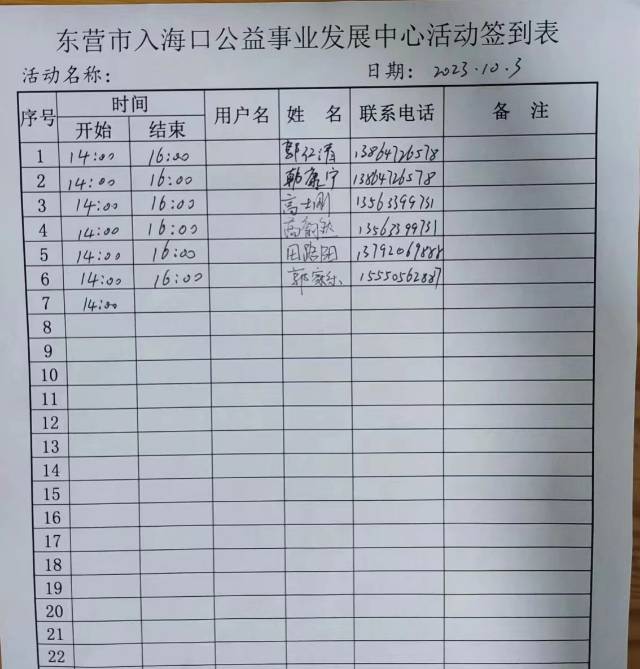 东营市入海口公益事业发展中心活动签到表
活动名称： 日期： 2023.10.3
序号 时间 用户名 姓 名 联系电话 备 注
开始 结束
1 14:00 16:00 13864726578
2 14:00 16:00 韩康宁 13864726578
3 14:00 16:00 高士刚 13563399731
4 14:00 16:00 13563399731
5 14:00 16:00 田路阳 13792069888
6 14:00 16:00 15550562887
7 14:00
8
9
10
11
12
13
14
15
16
17
18
19
20
21
22